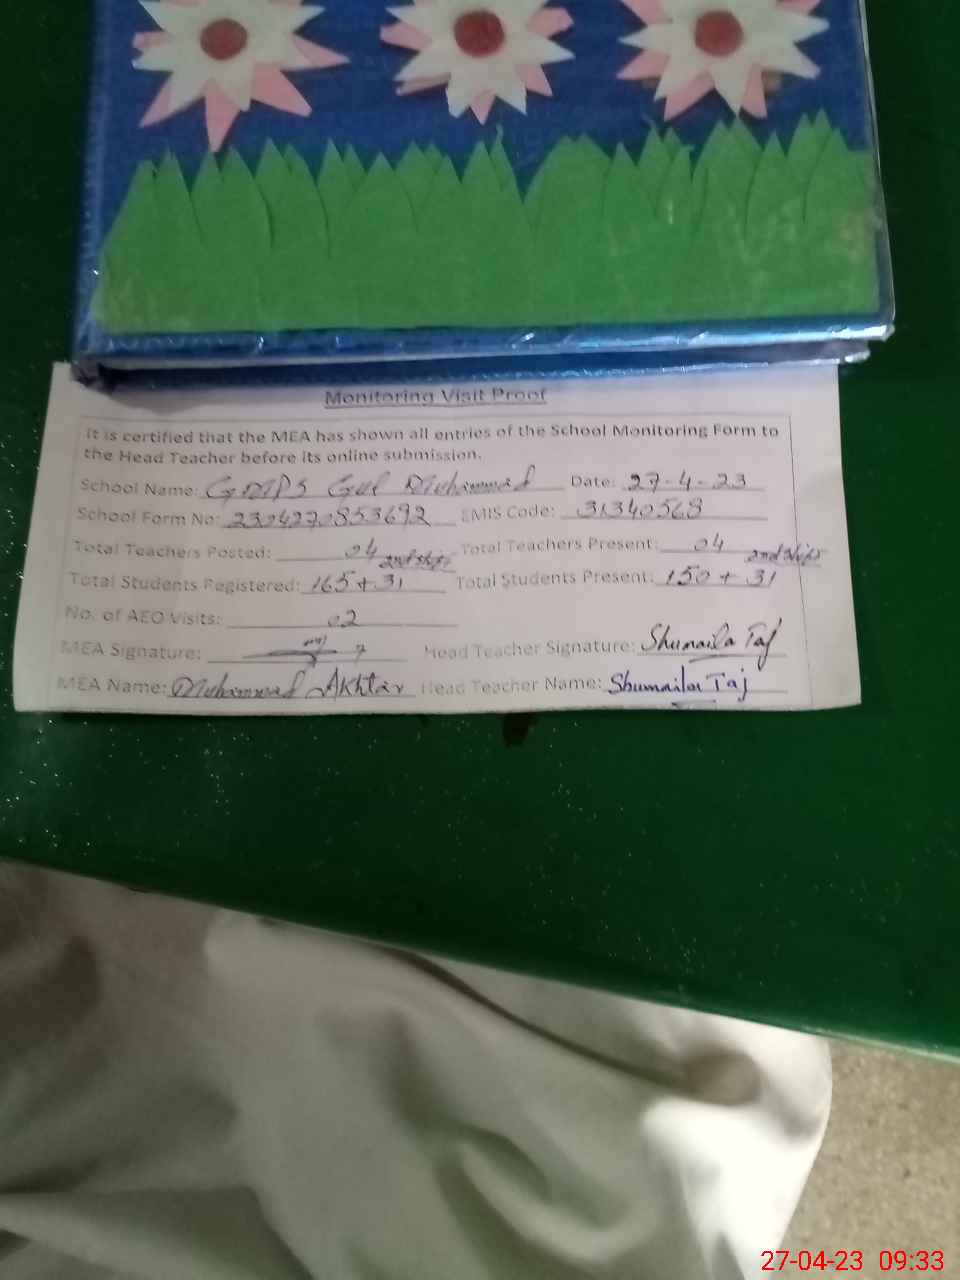 Monitoring Visit Proof
It is certified that the MEA has shown all entries of the School Monitoring Form to
the Head Teacher before its online submission.
School Name: GMPS Gul Muhammad Date: 27-4-23
School Form No: 2304270853692 EMIS Code: 31340568
Total Teachers Posted: 04 Total Teachers Present: 04
2nd shift 2nd shift
Total Students Registered: 165+31 Total Students Present: 150+31
No. of AEO Visits: 02
MEA Signature: Head Teacher Signature: Shumaila Taj
MEA Name: Muhammad Akhtar Head Teacher Name: Shumaila Taj
27-04-23 09:33